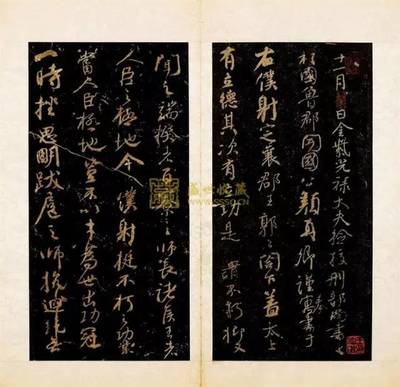 十一月日金紫光祿大夫檢校刑部尚書上
柱國魯郡開國公顏真卿謹奉書于
右僕射定襄郡王郭公閤下蓋太上
有立德其次有立功是之謂不朽抑又
聞之端揆者百寮之師長諸侯王者
人臣之極地今僕射挺不朽之功業
當人臣極地豈不以才為世出功冠
一時挫思明跋扈之師抗迴紇無
盛世收藏
www.sssc.cn